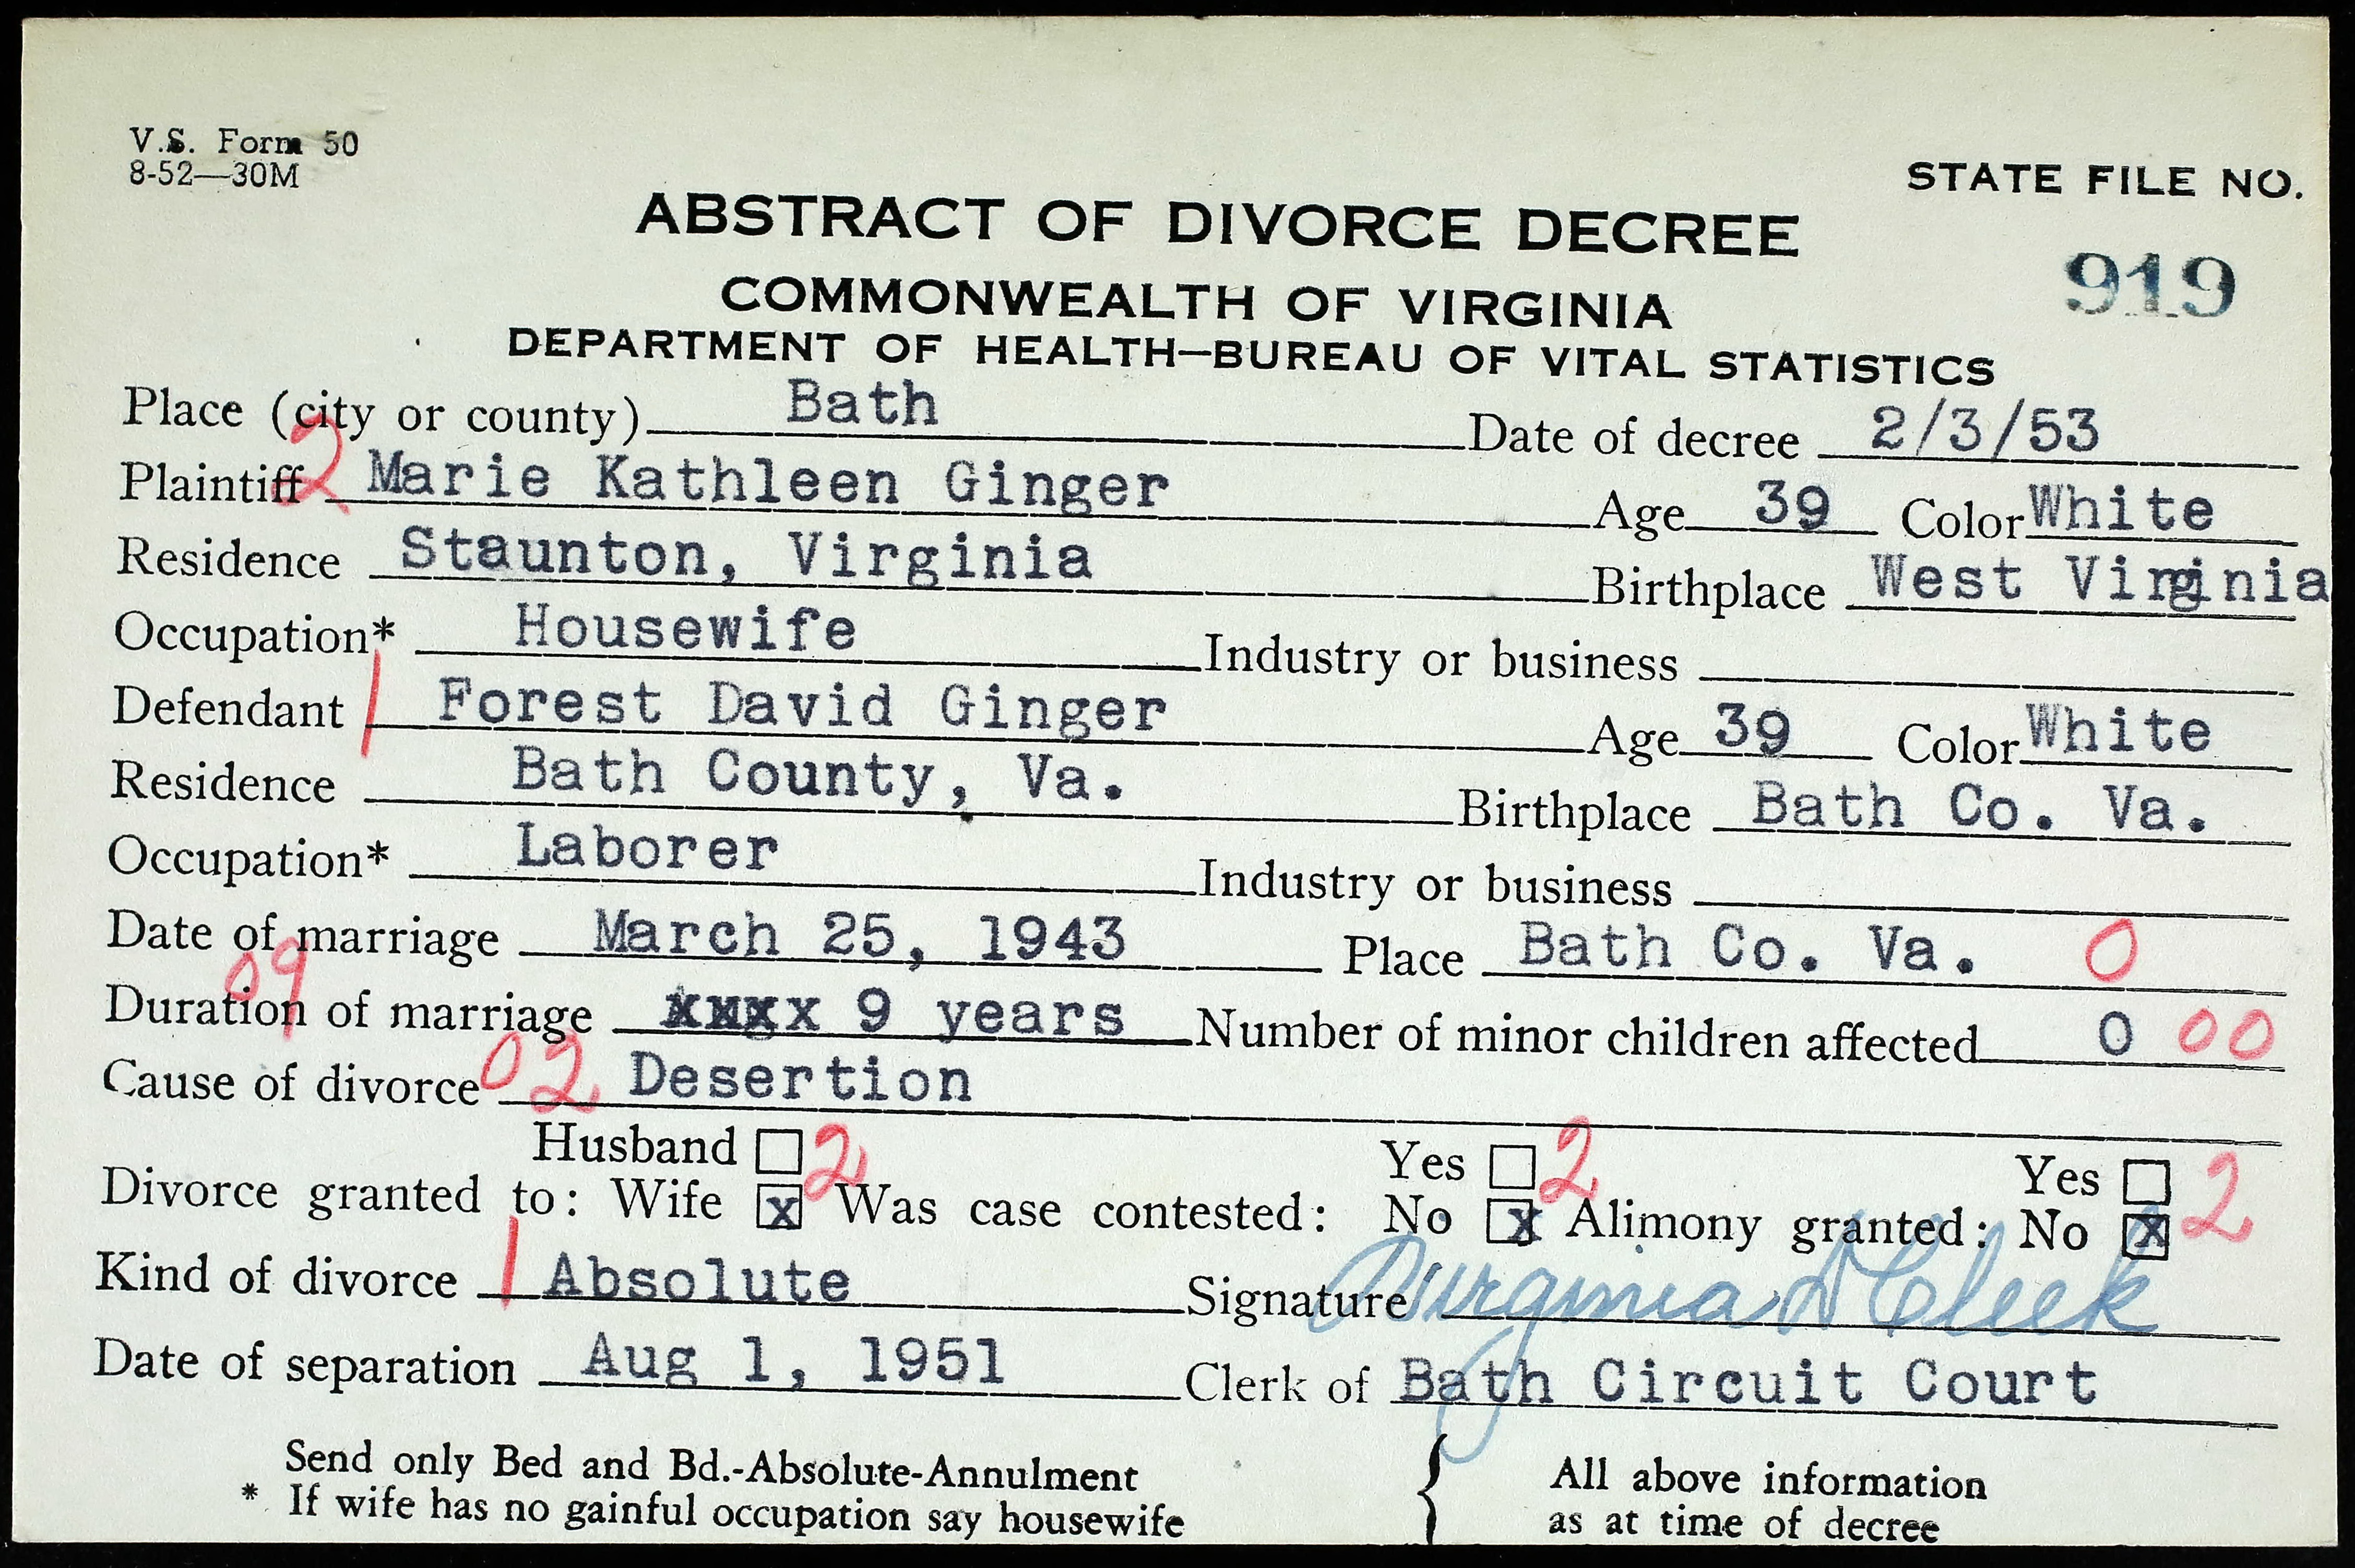 V.S. Form 50
8-52—30M
STATE FILE NO.
ABSTRACT OF DIVORCE DECREE
919
COMMONWEALTH OF VIRGINIA
DEPARTMENT OF HEALTH—BUREAU OF VITAL STATISTICS
Place (city or county) Bath Date of decree 2/3/53
Plaintiff 2 Marie Kathleen Ginger Age 39 Color White
Residence Staunton, Virginia Birthplace West Virginia
Occupation* Housewife Industry or business
Defendant 1 Forest David Ginger Age 39 Color White
Residence Bath County, Va. Birthplace Bath Co. Va.
Occupation* Laborer Industry or business
Date of marriage March 25, 1943 Place Bath Co. Va. 0
09
Duration of marriage xxxx 9 years Number of minor children affected 0 00
Cause of divorce 02 Desertion
Husband 2 Yes 2 Yes 2
Divorce granted to: Wife x Was case contested: No x Alimony granted: No x
Kind of divorce 1 Absolute Signature Virginia D Cleek
Date of separation Aug 1, 1951 Clerk of Bath Circuit Court
Send only Bed and Bd.-Absolute-Annulment { All above information
* If wife has no gainful occupation say housewife as at time of decree